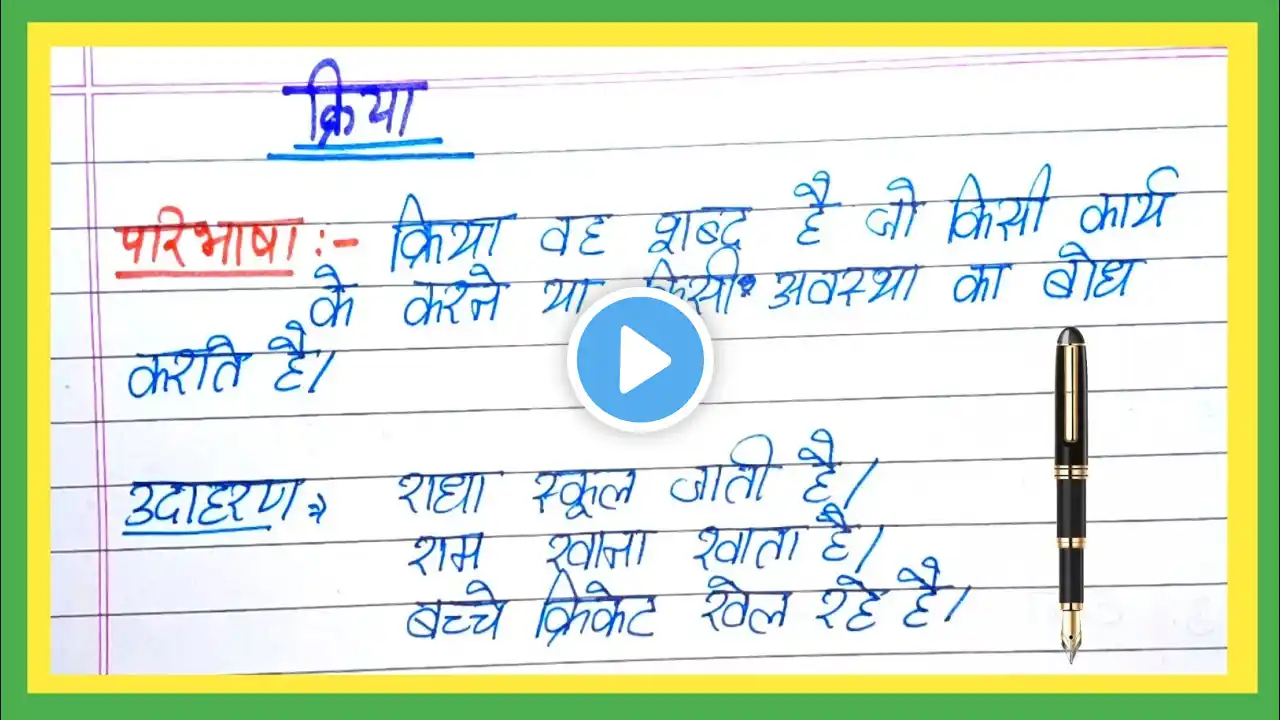 क्रिया
परिभाषा :- क्रिया वह शब्द है जो किसी कार्य
के करने या किसी अवस्था का बोध
करते है।
उदाहरण → राधा स्कूल जाती है।
राम खाना खाता है।
बच्चे क्रिकेट खेल रहे है।